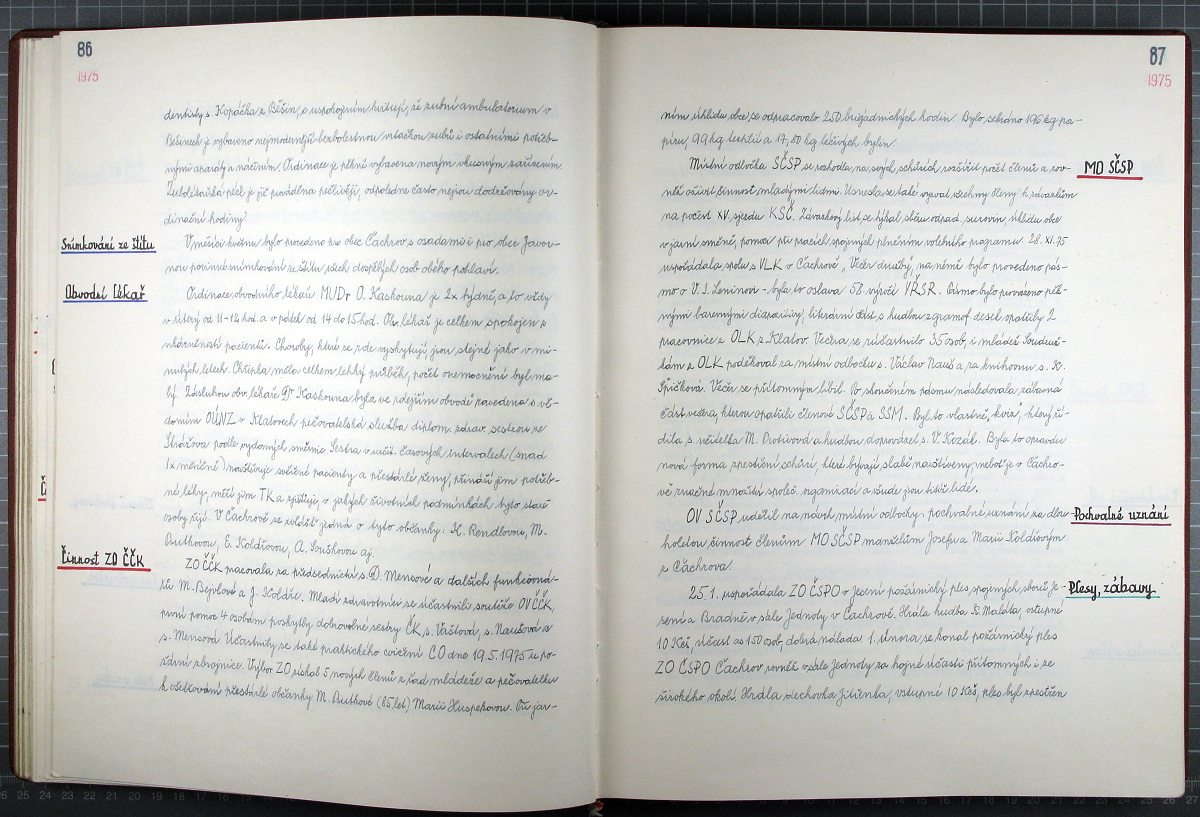 86
1975
dentisty s. Kopáčka z Běšin, s uspokojením kvitují, že zubní ambulatorium v
Běšinech je vybaveno nejmodernější bezbolestnou vrtačkou zubů i ostatními potřeb-
nými aparáty a náčiním. Ordinace je pěkně vybavena novým vkusným zařízením.
Zubolékařská péče je již prováděna pečlivěji, odpoledne často nejsou dodržovány or-
dinační hodiny?
Snímkování ze štítu
V měsíci květnu bylo provedeno pro obec Čachrov s osadami i pro obec Javor-
nou povinné snímkování ze štítu všech dospělých osob obého pohlaví.
Obvodní lékař
Ordinace obvodního lékaře MUDr O. Kaskouna je 2x týdně, a to vždy
v úterý od 11-12 hod. a v pátek od 14 do 15 hod. Ob. lékař je celkem spokojen s
ukázněností pacientů. Choroby, které se zde vyskytují jsou stejné jako v mi-
nulých letech. Chřipka měla celkem lehký průběh, počet onemocnění byl ma-
lý. Zásluhou obv. lékaře Dr Kaskouna byla ve zdejším obvodě zavedena s vě-
domím OÚNZ v Klatovech pečovatelská služba diplom. zdrav. sestrou ze
Strážova podle vydaných směrnic. Sestra v určit. časových intervalech (snad
1x měsíčně) navštěvuje svěřené pacienty a přestárlé ženy, přináší jim potřeb-
né léky, měří jim TK a zjišťuje, v jakých životních podmínkách tyto staré
osoby žijí. V Čachrově se zvláště jedná o tyto občanky: K. Rendlovou, M.
Outhovou, E. Koldíovou, A. Soušhovou aj.
Činnost ZO ČČK
ZO ČČK pracovala za předsednictví s. D. Mensové a dalších funkcioná-
řů M. Bejvlové a J. Koláře. Mladí zdravotníci se účastnili soutěže OV ČČK,
první pomoc 4 osobám poskytly dobrovolné sestry ČK, s. Vaštová, s. Naušová a
s. Mensová. Účastnily se také praktického cvičení CO dne 19.5.1975 u po-
žární zbrojnice. Výbor ZO získal 5 nových členů z řad mládeže a pečovatelku
k ošetřování přestárlé občanky M. Outhové (85 let) Marii Huspekovou. Při jar-
87
1975
ním úklidu obce se odpracovalo 250 brigádnických hodin. Bylo sebráno 196 kg pa-
píru, 99 kg textilií a 14,80 kg léčivých bylin.
MO SČSP
Místní odbočka SČSP se rozhodla na svých schůzích rozšířit počet členů a rov-
něž oživit činnost mladými lidmi. Usnesla se také vyzvat všechny členy k závazkům
na počest XV. sjezdu KSČ. Závazkový list se týkal sběru odpad. surovin, úklidu obce
v jarní směně, pomoci při pracích spojených s plněním volebního programu. 28. XI. 75
uspořádala spolu s VLK v Čachrově „Večer družby", na němž bylo provedeno pás-
mo o V. I. Leninovi - byla to oslava 58. výročí VŘSR. Pásmo bylo prováženo pěk-
nými barevnými diapozitivy, literární část s hudbou z gramof. desek opatřily 2
pracovnice z OLK z Klatov. Večera se zúčastnilo 35 osob, i mládež. Soudruž-
kám z OLK poděkoval za místní odbočku s. Václav Nauš a za knihovnu s. K.
Špičková. Večer se přítomným líbil. Po skončeném pásmu následovala zábavná
část večera, kterou opatřili členové SČSP a SSM. Byl to vlastně „kviz", který ří-
dila s. učitelka M. Protivová a hudbou doprovázel s. V. Kozák. Byla to opravdu
nová forma zpestření schůzí, které bývají slabě navštíveny, neboť je v Čachro-
vě značné množství společ. organizací a všude jsou titíž lidé.
Pochvalné uznání
OV SČSP udělil na návrh místní odbočky - pochvalné uznání za dlou-
holetou činnost členům MO SČSP manželům Josefu a Marii Koldíovým
z Čachrova.
Plesy, zábavy
25.1. uspořádala ZO ČSPO v Jesení požárnický ples spojených sborů Je-
sení a Bradné v sále Jednoty v Čachrově. Hrála hudba K. Maláta, vstupné
10 Kčs, účast as 150 osob, dobrá nálada. 1. února se konal požárnický ples
ZO ČSPO Čachrov rovněž v sále Jednoty za hojné účasti přítomných i ze
širokého okolí. Hrála dechovka Jitřenka, vstupné 10 Kčs, ples byl zpestřen